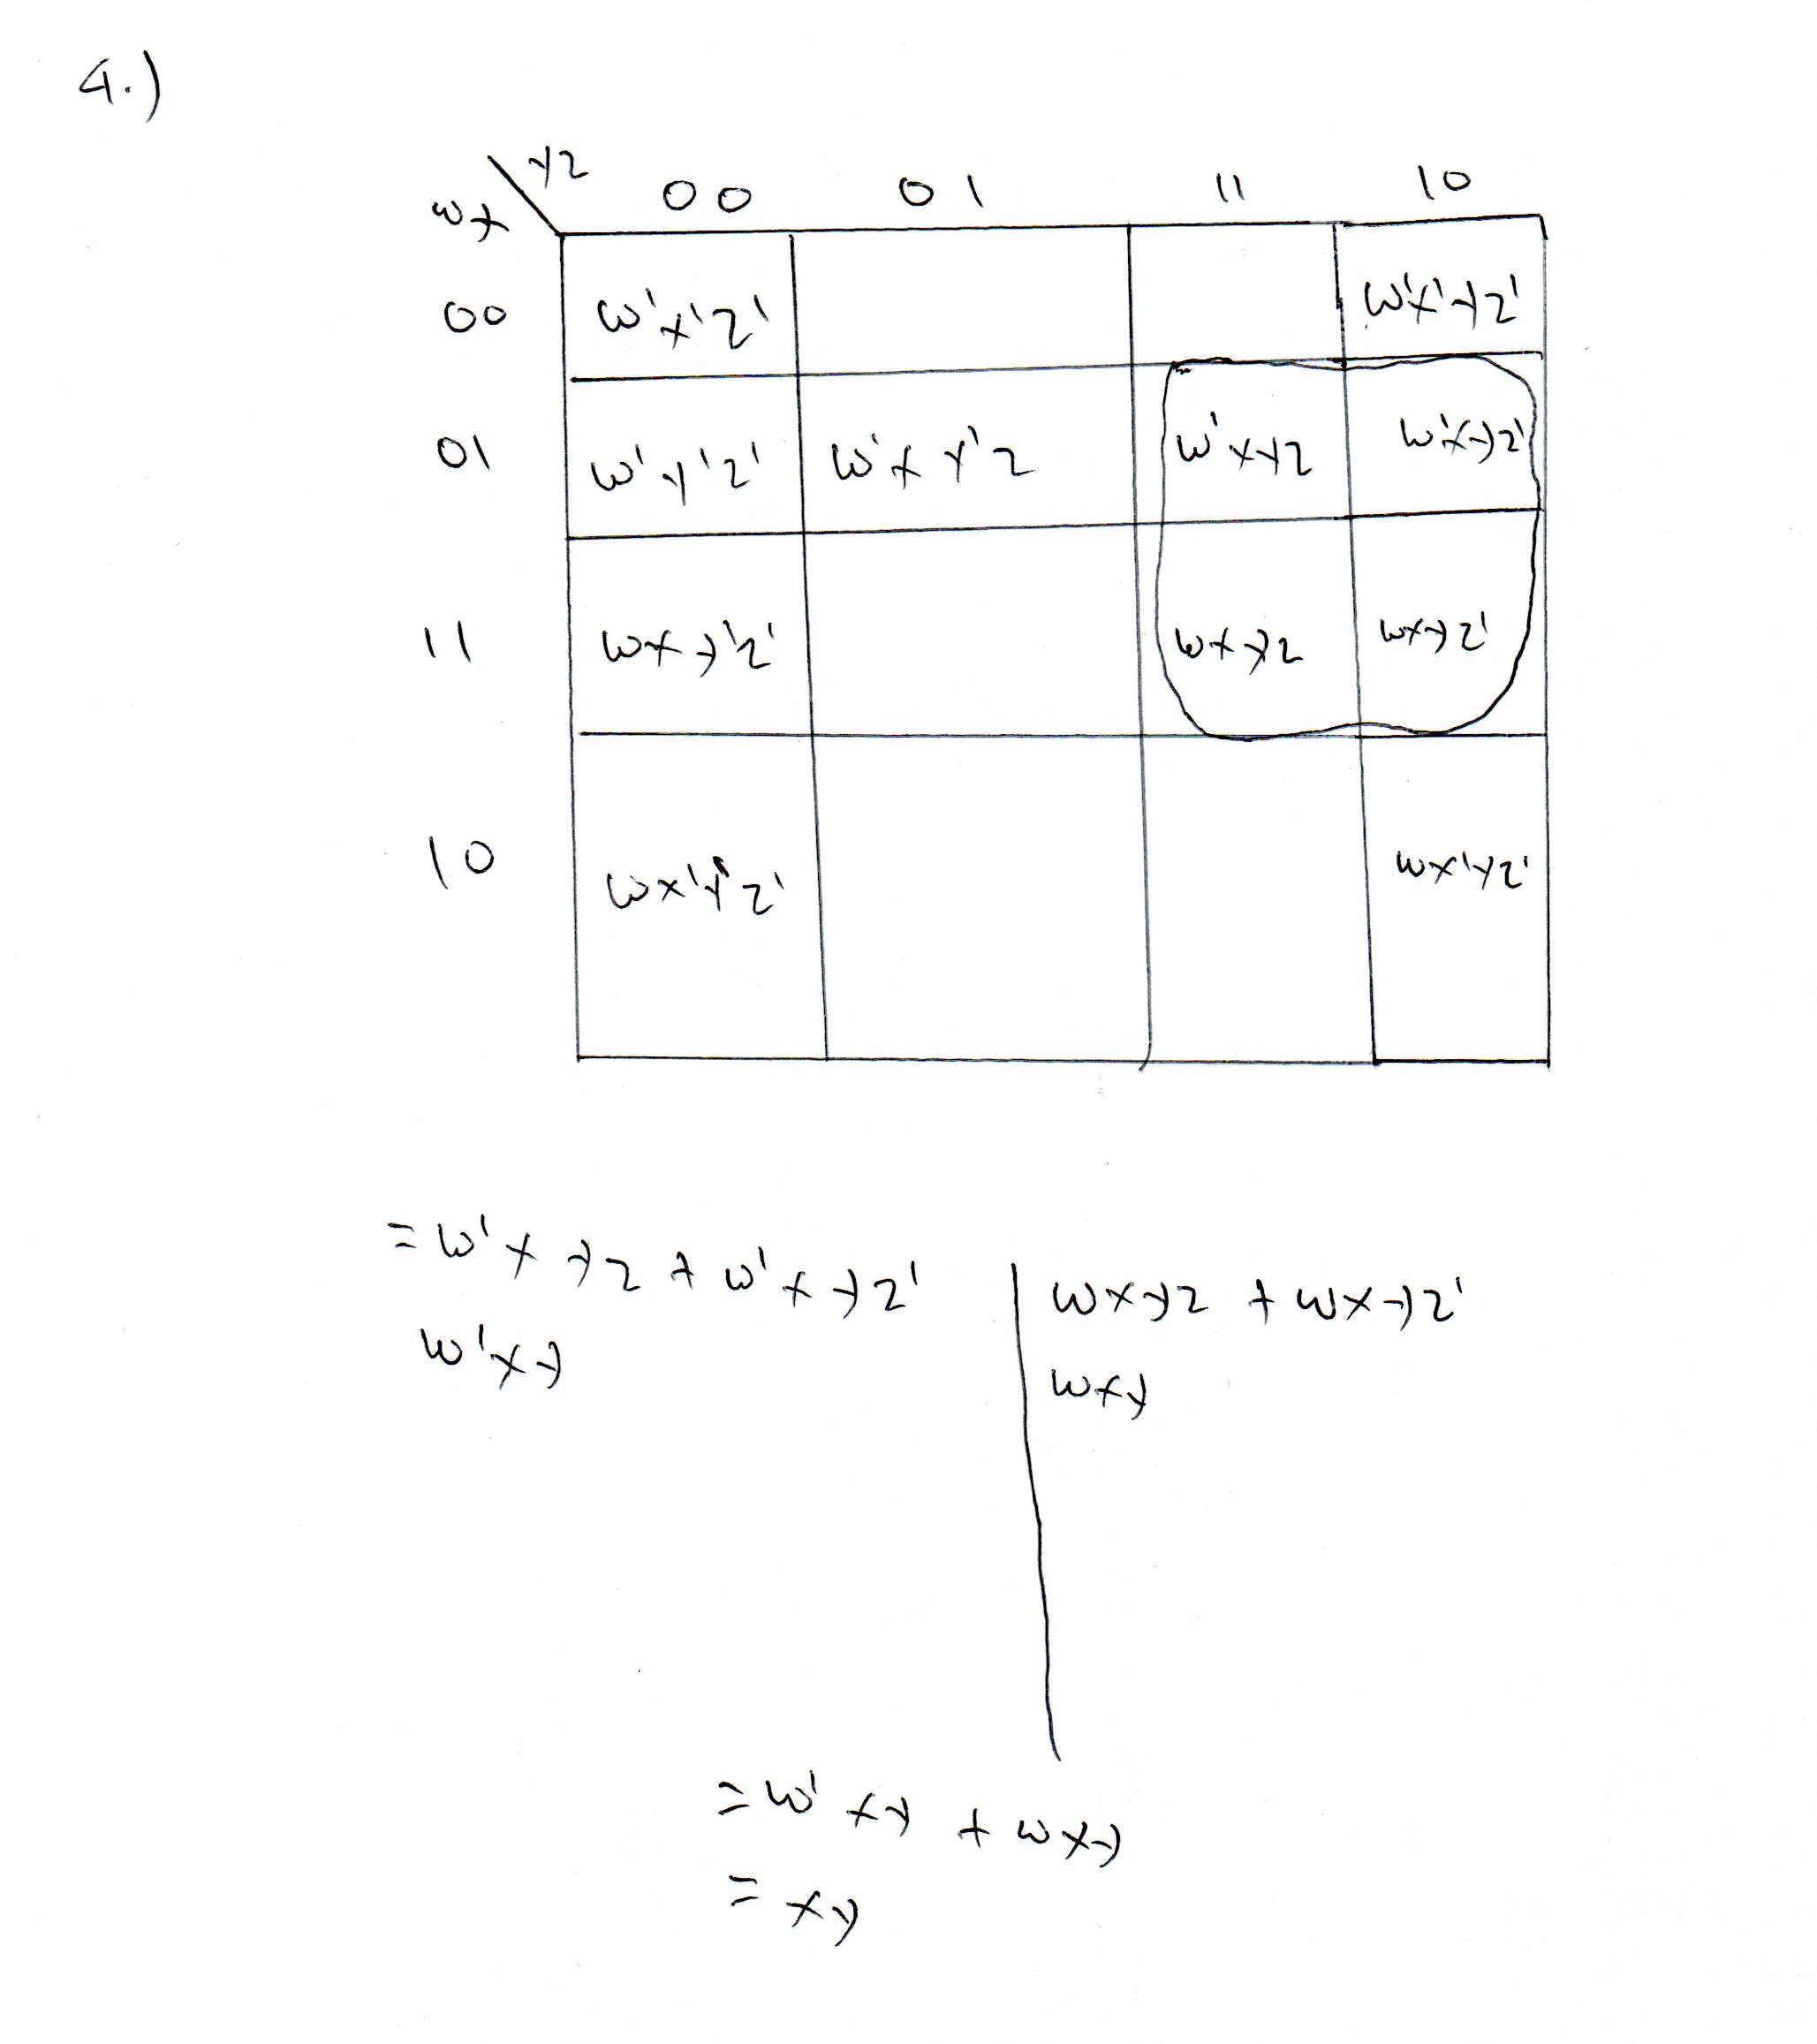 4.)
yz
wx
00 01 11 10
00 w'x'z' w'x'yz'
01 w'y'z' w'xy'z w'xyz w'xyz'
11 wxy'z' wxyz wxyz'
10 wx'y'z' wx'yz'
= w'xyz + w'xyz'
w'xy
wxyz + wxyz'
wxy
= w'xy + wxy
= xy